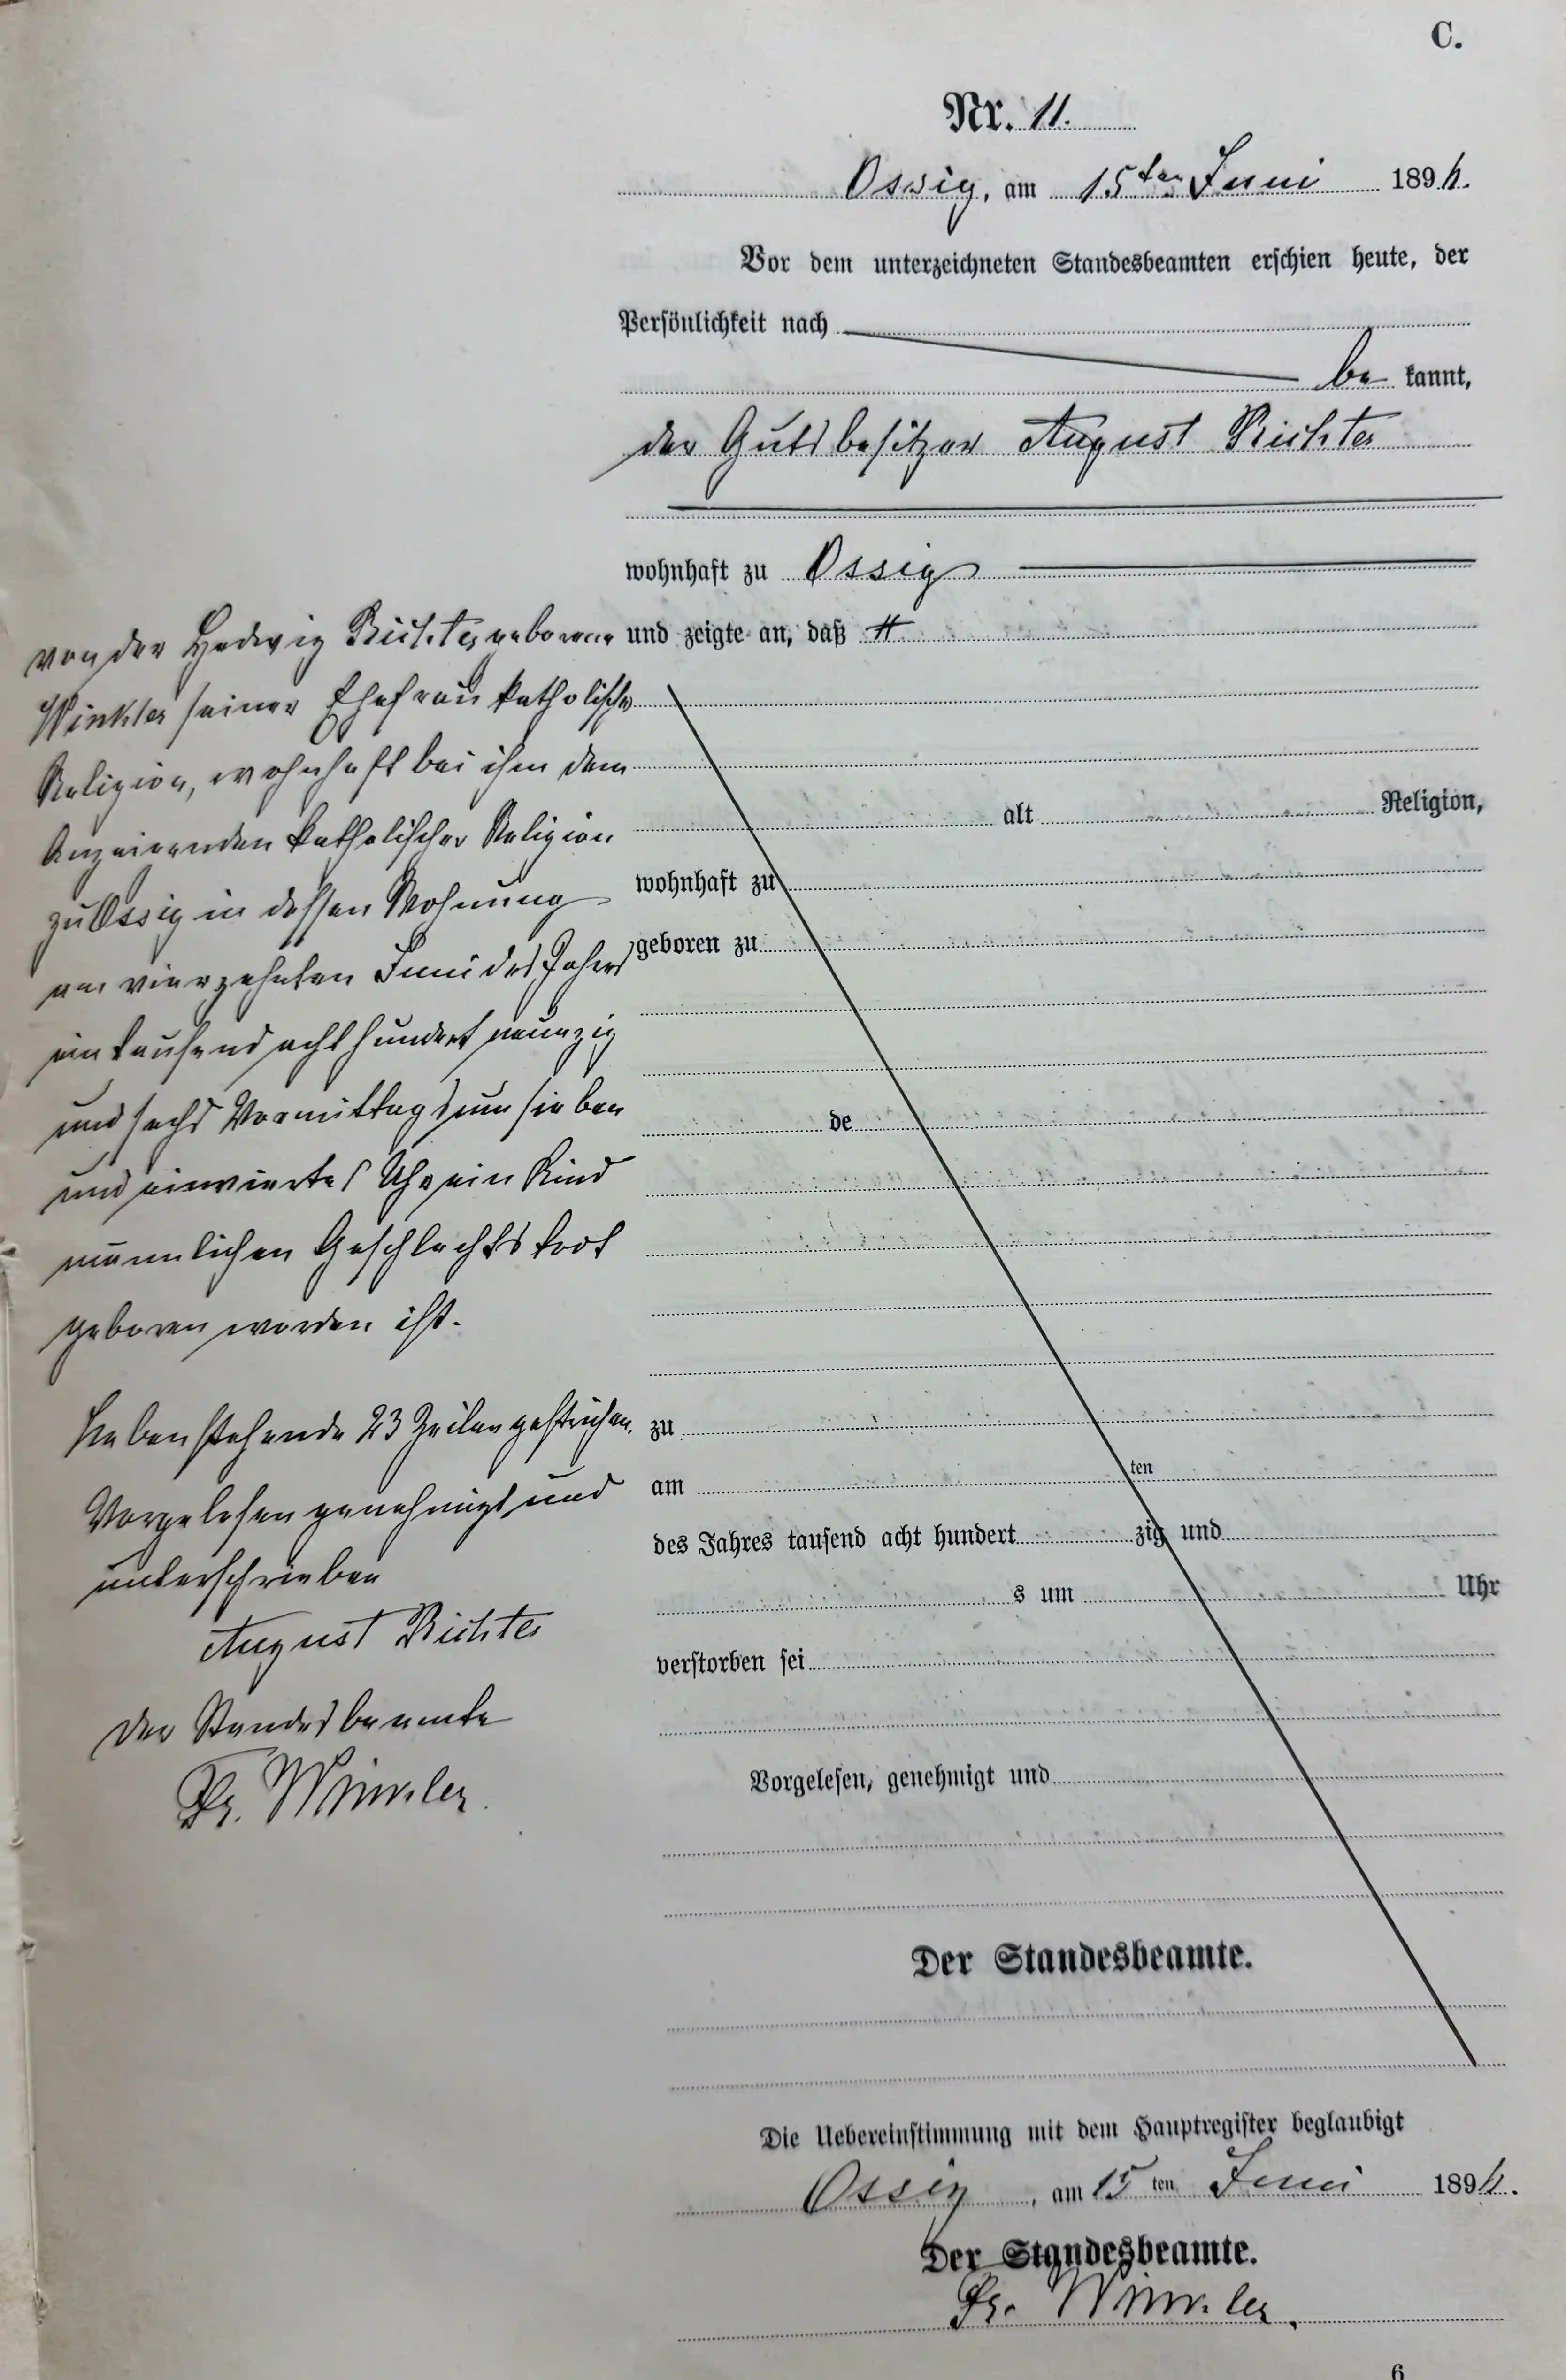 C.
Nr. 11.
Ossig, am 15ten Juni 1896.
Vor dem unterzeichneten Standesbeamten erschien heute, der
Persönlichkeit nach
be kannt,
der Gutsbesitzer August Richter
wohnhaft zu Ossig
und zeigte an, daß #
von der Hedwig Richter geborene
Winkler seiner Ehefrau katholischer
Religion, wohnhaft bei ihm dem
Anzeigenden katholischer Religion
zu Ossig in dessen Wohnung
am vierzehnten Juni des Jahres
eintausend acht hundert neunzig
und sechs Vormittags um sieben
und einviertel Uhr ein Kind
männlichen Geschlechts todt
geboren worden ist.
Nebenstehende 23 Zeilen gestrichen.
Vorgelesen genehmigt und
unterschrieben
August Richter
Der Standesbeamte
Fr. Winkler.
alt Religion,
wohnhaft zu
geboren zu
de
zu
am ten
des Jahres tausend acht hundert zig und
s um Uhr
verstorben sei
Vorgelesen, genehmigt und
Der Standesbeamte.
Die Uebereinstimmung mit dem Hauptregister beglaubigt
Ossig, am 15 ten Juni 1896.
Der Standesbeamte.
Fr. Winkler.
6